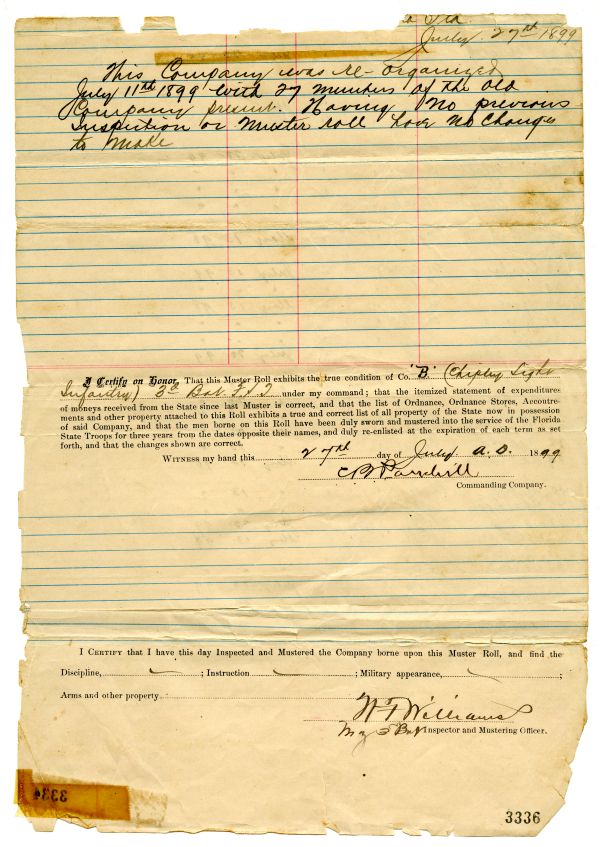 Fla.
July 27th 1899
This Company was re-organized
July 11th 1899 with 27 members of the old
Company present. Having No previous
Inspection or Muster roll have no Changes
to make
I Certify on Honor, That this Muster Roll exhibits the true condition of Co. "B." (Chipley Light
Infantry) 3d Bat F.S.T under my command; that the itemized statement of expenditures
of moneys received from the State since last Muster is correct, and that the list of Ordnance, Ordnance Stores, Accoutre-
ments and other property attached to this Roll exhibits a true and correct list of all property of the State now in possession
of said Company, and that the men borne on this Roll have been duly sworn and mustered into the service of the Florida
State Troops for three years from the dates opposite their names, and duly re-enlisted at the expiration of each term as set
forth, and that the changes shown are correct.
Witness my hand this 27th day of July A.D. 1899
Commanding Company.
I Certify that I have this day Inspected and Mustered the Company borne upon this Muster Roll, and find the
Discipline, ; Instruction ; Military appearance, ;
Arms and other property
W F Williams
Maj 3 Bat Inspector and Mustering Officer.
3334
3336